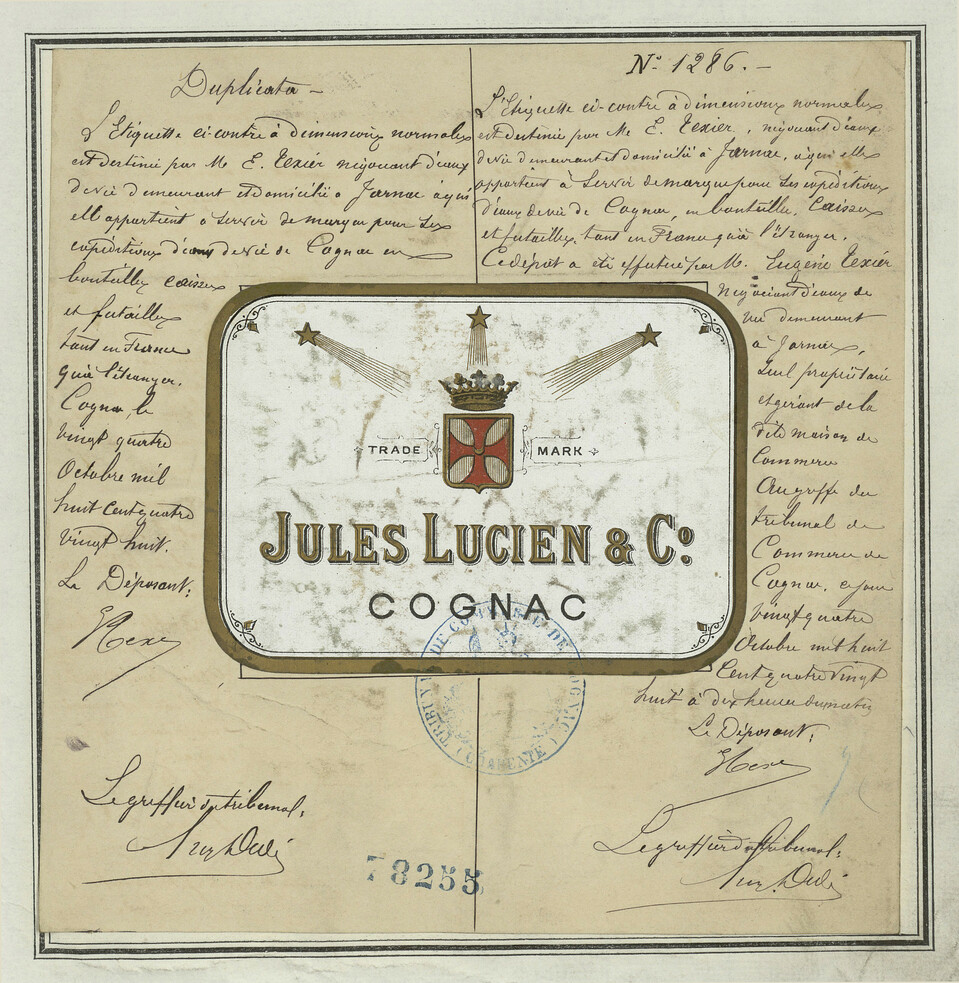 Duplicata -
L'Etiquette ci contre à dimensions normales
est destinée par Mr E. Texier négociant d'eaux
de vie demeurant et domicilié à Jarnac à qui
elle appartient à servir de marque pour ses
expéditions d'eaux de vie de Cognac en
bouteilles caisses
et futailles
tant en France
qu'à l'étranger.
Cognac, le
vingt quatre
Octobre mil
huit cent quatre
vingt huit.
Le Déposant,
Le greffier du tribunal,
No 1286. -
L'Etiquette ci-contre à dimensions normales
est destinée par Mr E. Texier, négociant d'eaux
de vie demeurant et domicilié à Jarnac, à qui elle
appartient à servir de marque pour ses expéditions
d'eaux de vie de Cognac, en bouteilles, caisses
et futailles, tant en France qu'à l'étranger.
Ce dépôt a été effectué par M. Eugène Texier
négociant d'eaux de
vie demeurant
à Jarnac,
seul propriétaire
et gérant de la
dite maison de
Commerce
Au greffe du
tribunal de
Commerce de
Cognac, ce jour
vingt quatre
Octobre mil huit
cent quatre vingt
huit à dix heures du matin
Le Déposant,
Le greffier du tribunal,
TRADE MARK
JULES LUCIEN & Co
COGNAC
TRIBUNAL DE COMMERCE DE COGNAC
(CHARENTE)
78255